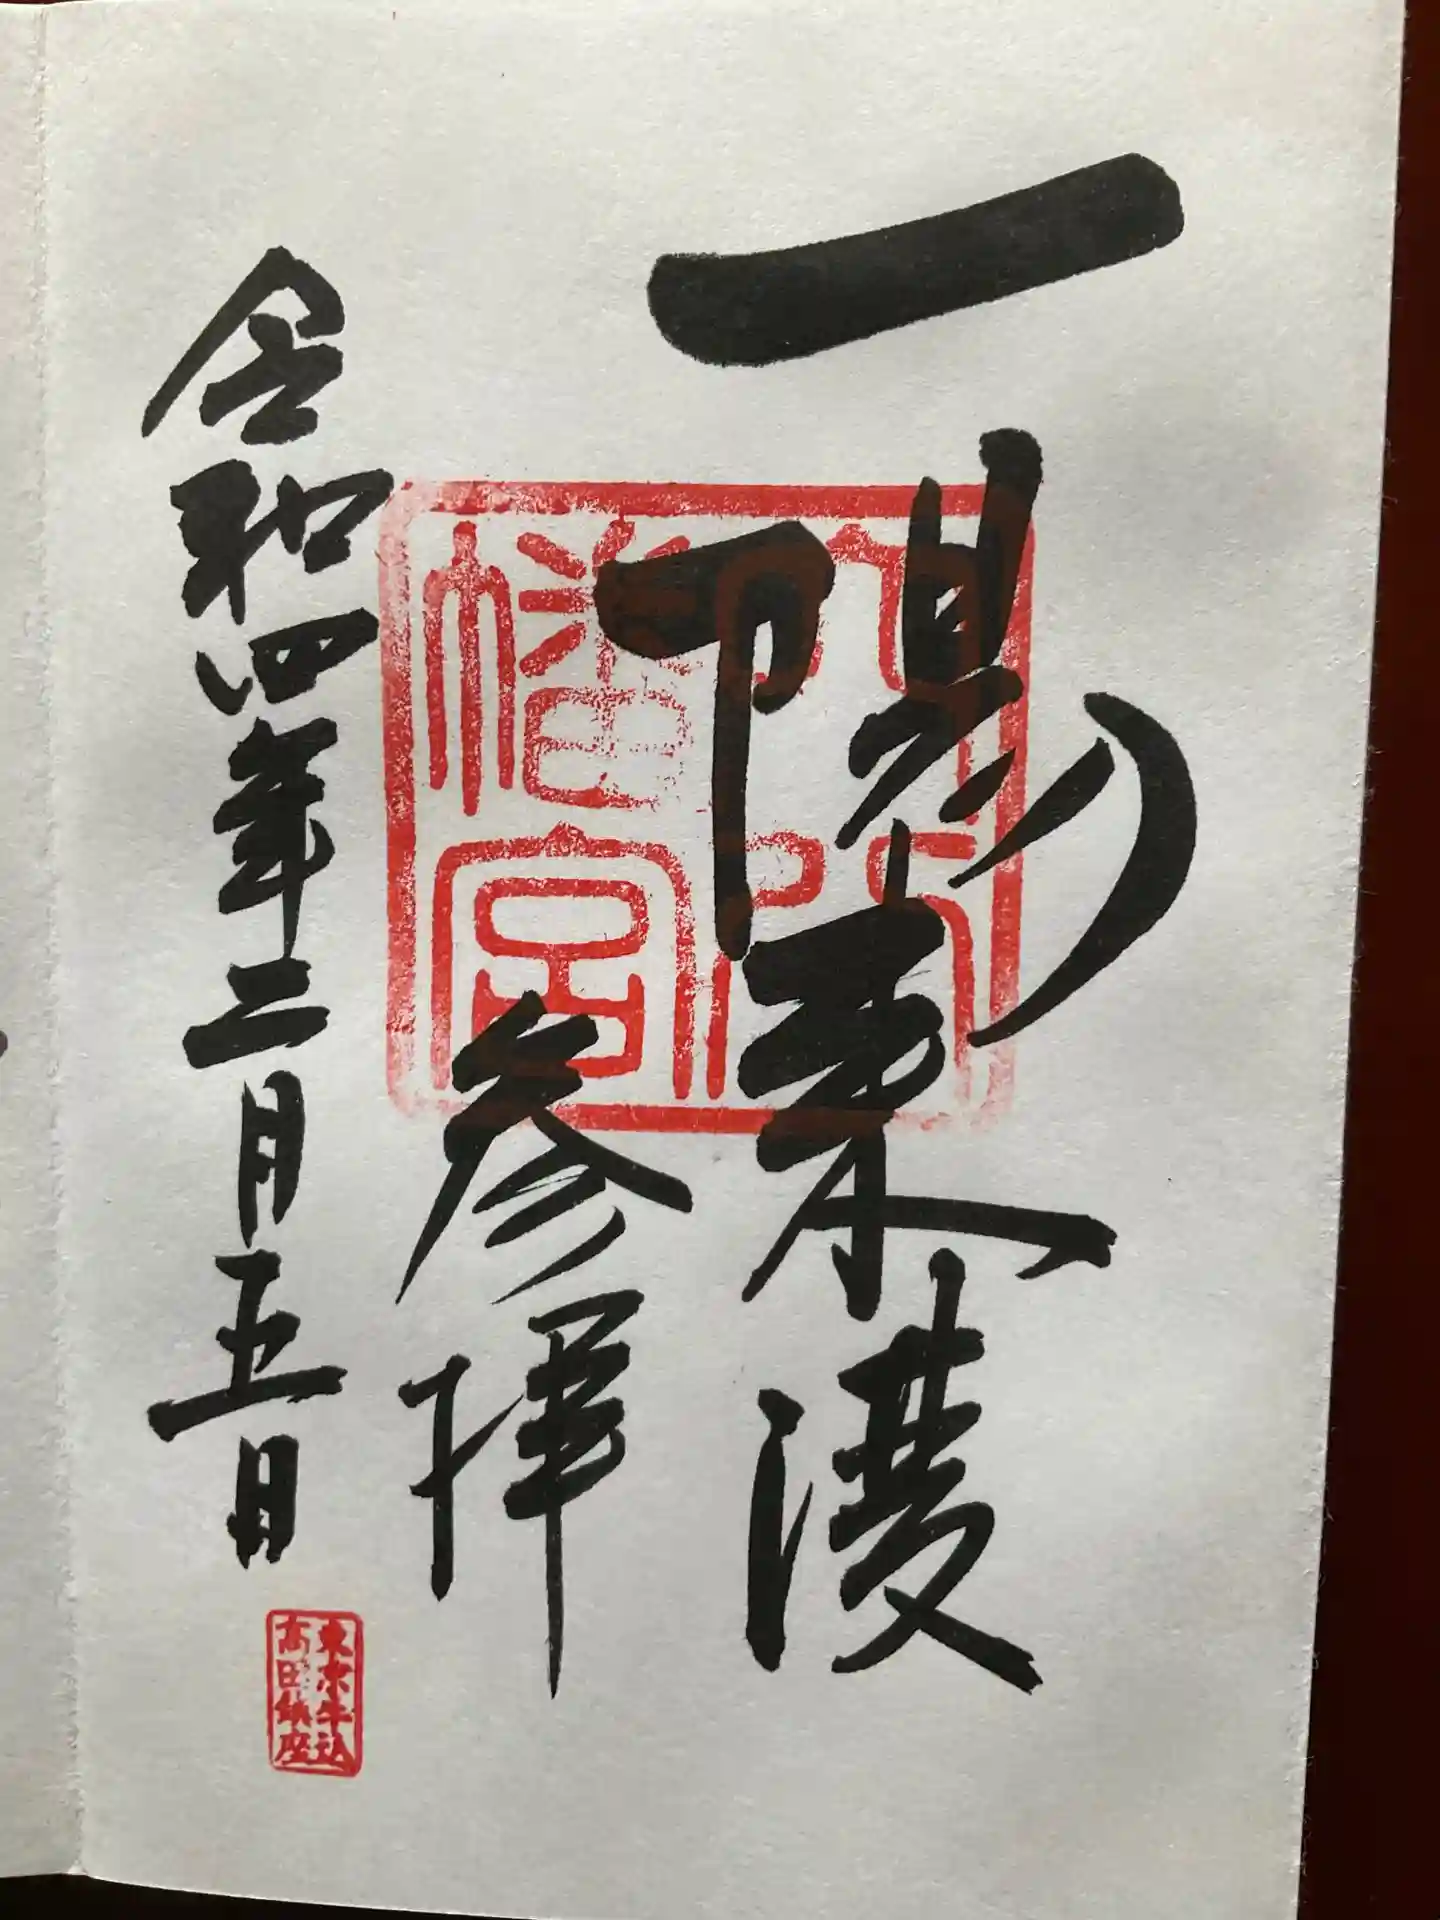 一陽来復
穴八
幡宮
参拝
令和四年二月五日
東京牛込
高田鎮座